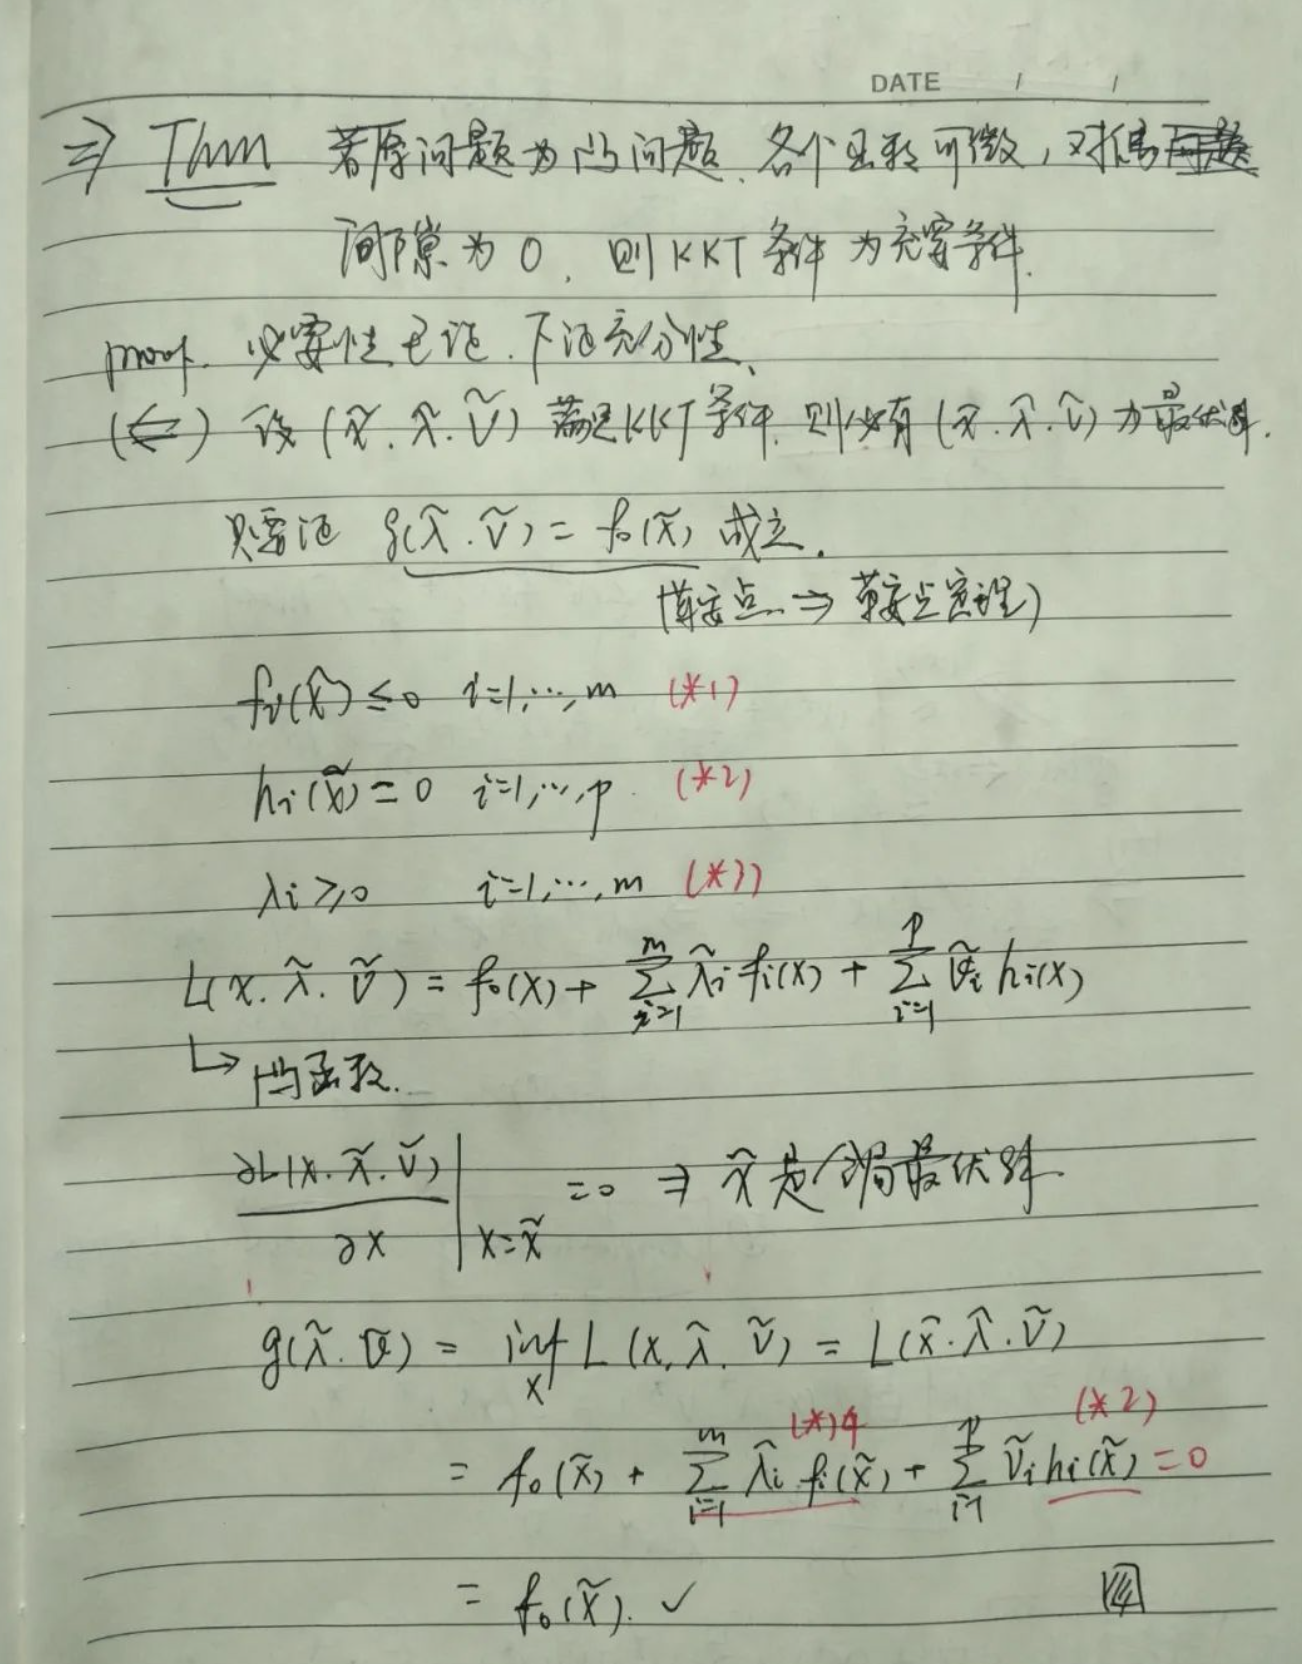 DATE / /
⇒ Thm 若原问题为凸问题、各个函数可微，对偶
间隙为0，则KKT条件为充要条件.
proof. 必要性已证.下证充分性、
(⇐) 设 (x̃. λ̃. ṽ) 满足KKT条件. 则必有 (x̃. λ̃. ṽ) 为最优解.
只需证 g(λ̃.ṽ) = f₀(x̃) 成立.
(鞍点 ⇒ 鞍点定理)
fᵢ(x̃) ≤ 0 i=1,…,m (*1)
hᵢ(x̃) = 0 i=1,…,p. (*2)
λᵢ ≥ 0 i=1,…,m (*3)
L(x. λ̃. ṽ) = f₀(x) + Σᵢ₌₁ᵐ λ̃ᵢ fᵢ(x) + Σᵢ₌₁ᵖ ṽᵢ hᵢ(x)
↳ 凸函数.
∂L(x. λ̃. ṽ)/∂x |x=x̃ =0 ⇒ x̃ 是全局最优解.
g(λ̃. ṽ) = inf_x L (x, λ̃. ṽ) = L(x̃. λ̃. ṽ)
(*)4 (*2)
= f₀(x̃) + Σᵢ₌₁ᵐ λ̃ᵢ fᵢ(x̃) + Σᵢ₌₁ᵖ ṽᵢ hᵢ(x̃) = 0
= f₀(x̃). ✓